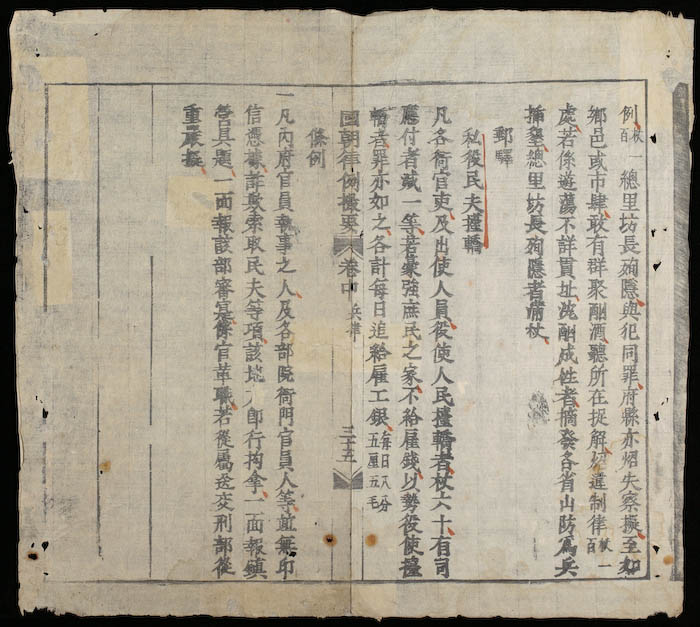 例杖一百總里坊長殉隱與犯同罪府縣亦炤失察擬至如
鄉邑或市肆敢有群聚酗酒聽所在捉解炤違制律杖一百
處若係遊蕩不詳貫址淹酗成姓者摘發各省山防爲兵
插墾總里坊長殉隱者滿杖
郵驛
私役民夫擡轎
凡各衙官吏及出使人員役使人民擡轎者杖六十有司
應付者減一等若豪強庶民之家不給雇錢以勢役使擡
轎者罪亦如之各計每日追給雇工銀每日八分五厘五毛
國朝律例撮要 卷中 兵律 三十五
條例
一凡內府官員執事之人及各部院衙門官員人等並無印
信憑據詐冒索取民夫等項該地方即行拘拿一面報鎮
營具題一面報該部審寔係官革職若從屬送交刑部從
重嚴擬